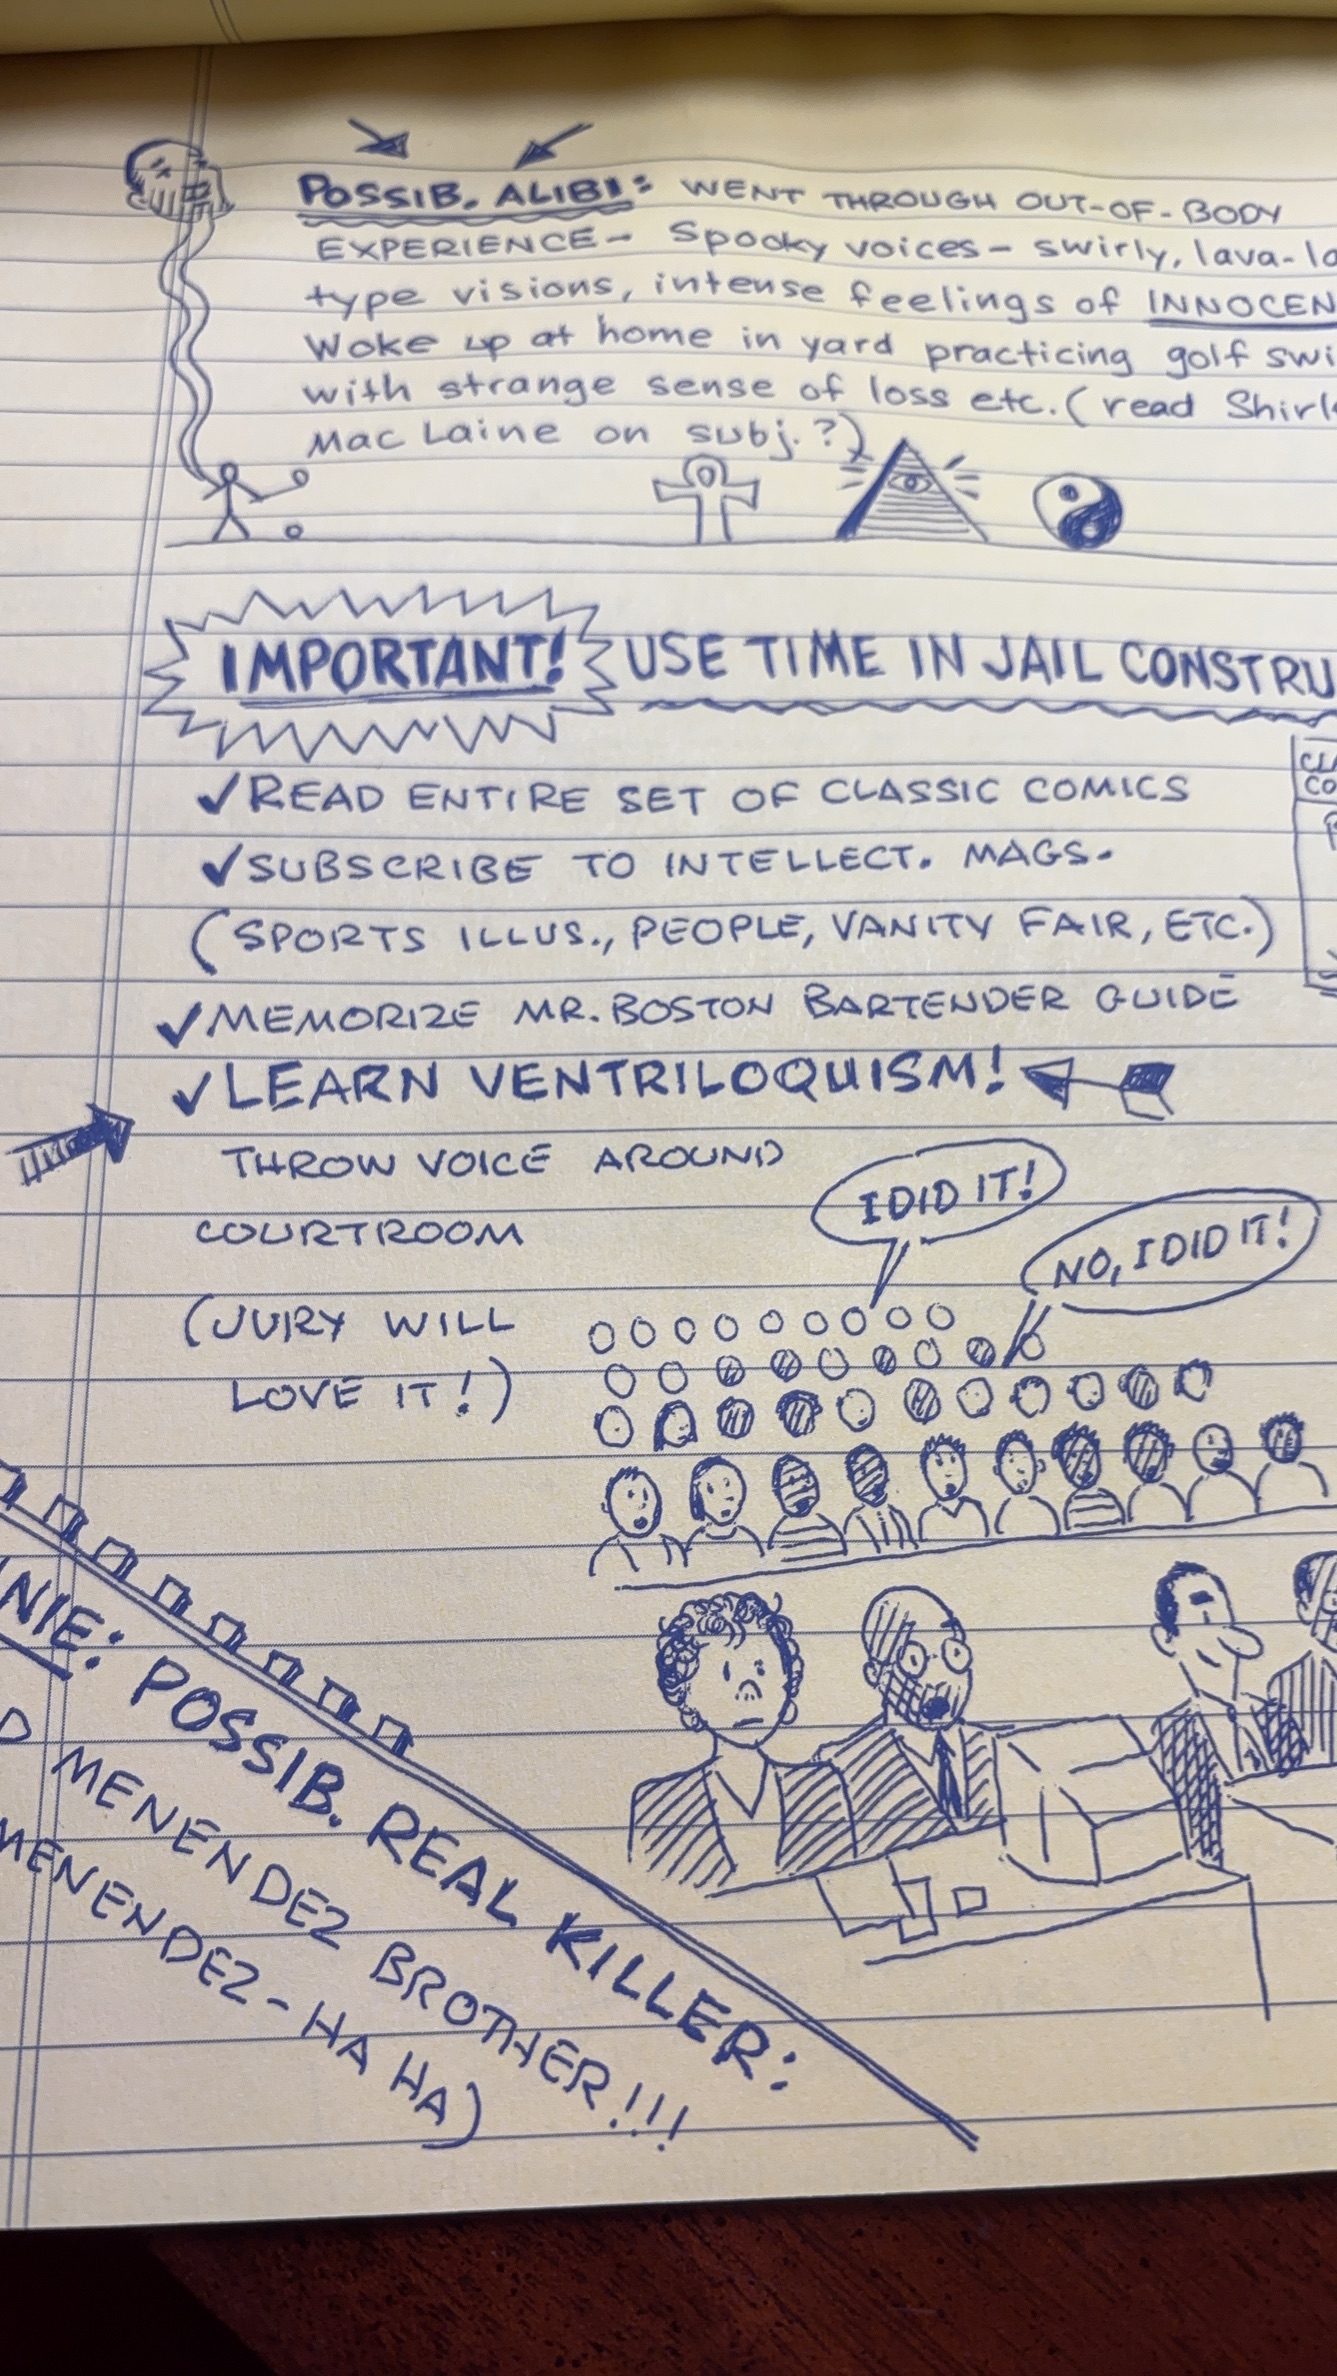 POSSIB. ALIBI: WENT THROUGH OUT-OF-BODY
EXPERIENCE- Spooky voices- swirly, lava-la
type visions, intense feelings of INNOCEN
Woke up at home in yard practicing golf swi
with strange sense of loss etc. (read Shirl
MacLaine on subj.?)
IMPORTANT! USE TIME IN JAIL CONSTRU
✓READ ENTIRE SET OF CLASSIC COMICS
✓SUBSCRIBE TO INTELLECT. MAGS.
(SPORTS ILLUS., PEOPLE, VANITY FAIR, ETC.)
✓MEMORIZE MR. BOSTON BARTENDER GUIDE
✓LEARN VENTRILOQUISM!
THROW VOICE AROUND
COURTROOM
(JURY WILL
LOVE IT!)
I DID IT!
NO, I DID IT!
NIE: POSSIB. REAL KILLER:
D MENENDEZ BROTHER!!!
MENENDEZ-HA HA)
CO